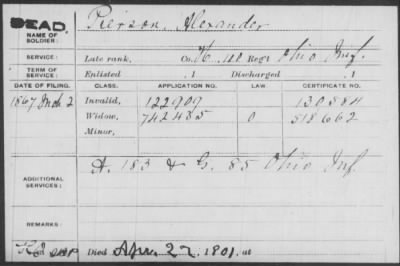 DEAD Pierson, Alexander
NAME OF SOLDIER:
SERVICE: Late rank, Co. K, 122 Reg't Ohio Inf.
TERM OF SERVICE: Enlisted , 1 Discharged , 1
DATE OF FILING. CLASS. APPLICATION NO. LAW. CERTIFICATE NO.
1867 Mch 2 Invalid, 122909 130584
Widow, 742485 0 518662
Minor,
ADDITIONAL SERVICES: A. 183 & G. 85 Ohio Inf
REMARKS:
Died Apr. 27, 1901, at